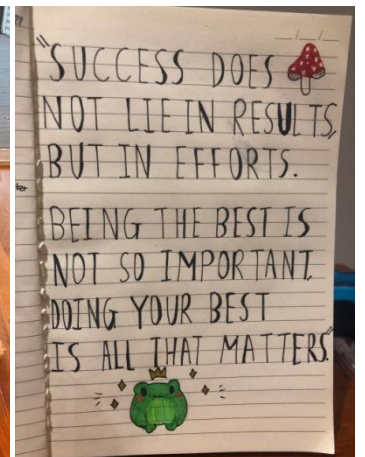 "SUCCESS DOES
NOT LIE IN RESULTS,
BUT IN EFFORTS.
BEING THE BEST IS
NOT SO IMPORTANT,
DOING YOUR BEST
IS ALL THAT MATTERS."